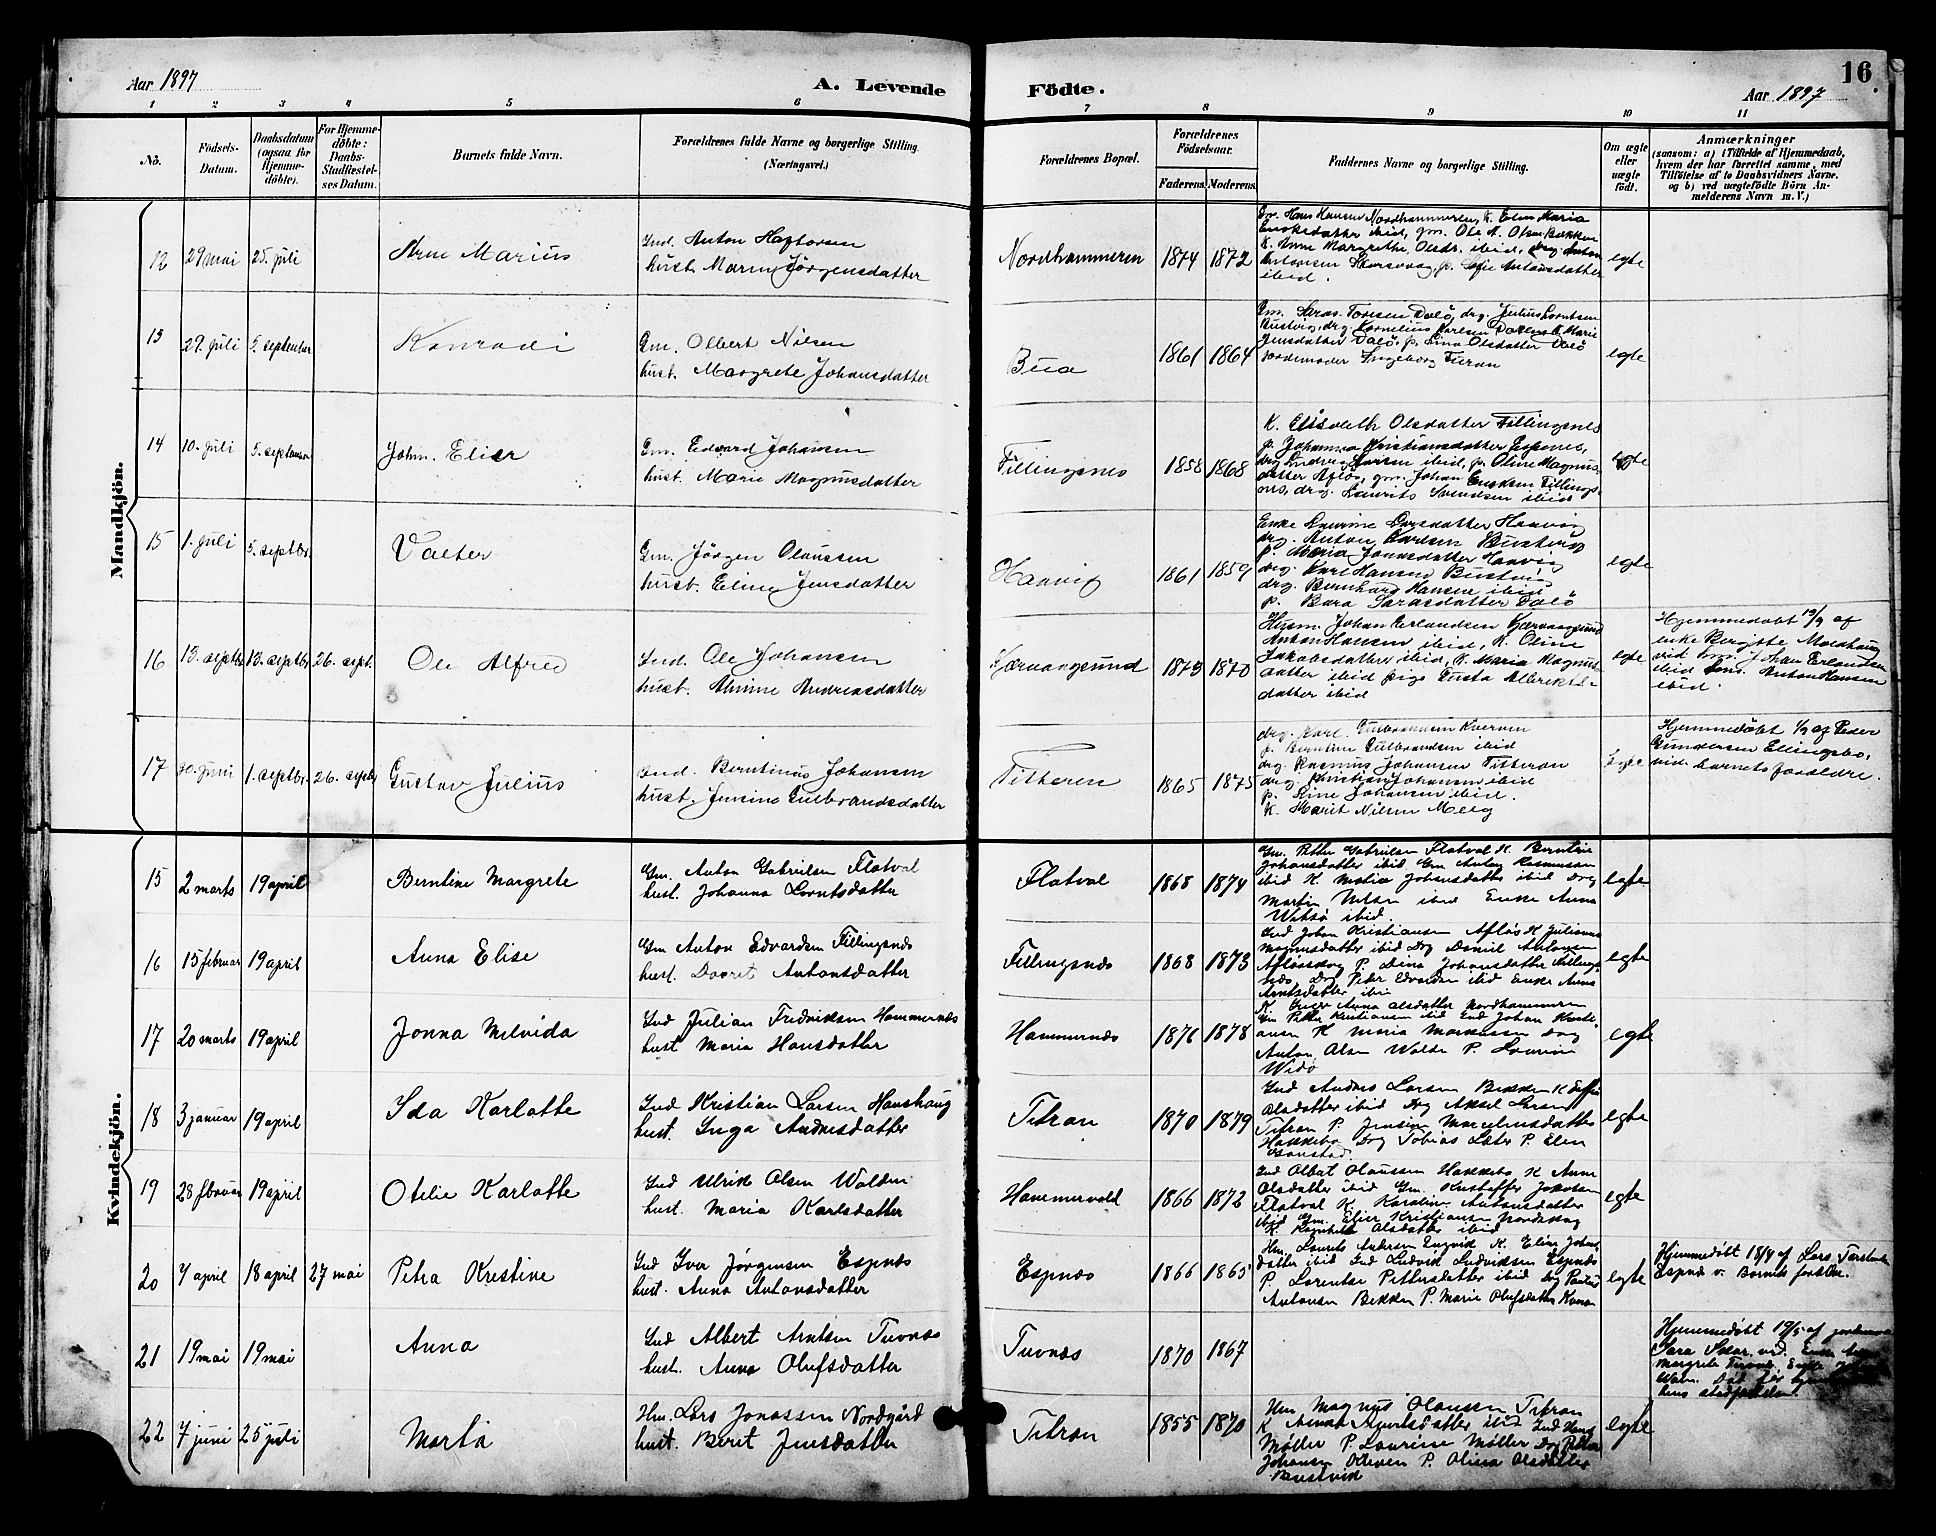 Aar 1897
A. Levende
Födte.
Aar 1897
16
1 2 3 4 5 6 7 8 9 10 11
No.
Födsels-
Datum.
Daabsdatum
(ogsaa for
Hjemme-
döbte).
For Hjemme-
döbte:
Daabs-
Stadfæstel-
ses Datum.
Barnets fulde Navn.
Forældrenes fulde Navne og borgerlige Stilling.
(Næringsvei.)
Forældrenes Bopæl.
Forældrenes
Födselsaar.
Faderens. Moderens.
Faddernes Navne og borgerlige Stilling.
Om ægte
eller
uægte
födt.
Anmærkninger
(saasom: a) i Tilfælde af Hjemmedaab,
hvem der har forrettet samme, med
Tilföielse af to Daabsvidners Navne.
og b) ved uægtefödte Börn An-
melderens Navn m. V.)
Mandkjön.
12 29 mai 25. juli
Arne Marius
Ind. Anton Haftorsen
hust. Jörgensdatter
Nordhammeren 1874 1872
Gm. Hans Hansen Nordhammeren, K. Elen Maria
ibid, gm. Ole A. Olsen Bekken
K. Anne Margrethe Olsdt. ibid, drg. Anton
Antonsen p. Sofie Antonsdatter
ibid.
egte
13 29. juli 5. september
Konradi
Gm. Olbert Nilsen
hust. Margrete Johansdatter
Bua 1861 1864
Gm. Toresen Dolö, drg. Julius Lorntsen
Bustvig, drg. Kornelius Karlsen K. Marie
Jensdatter Dolö, p. Lina Olsdatter Dolö
jordemoder Ingeborg Titran
egte
14 10. juli 5. september
John. Elier
Gm. Edvard Johansen
hust. Marie Magnusdatter
Fillingsnes 1858 1868
K. Elisabeth Olsdatter Fillingsnes
p. Johanna Kristiansdatter Espnes,
drg. Ludvig Larsen ibid, p. Oline Magnus-
datter Aflös, gm. Johan Eriksen Fillings-
nes, drg. Laurits Svendsen ibid
egte
15 1. juli 5. septbr.
Valter
Gm. Jörgen Olaussen
hust. Eline Jensdatter
Haavig 1861 1859
Enke Laurine Larsdatter Haavig
drg. Anton Karlsen Bustvig
p. Maria Jonasdatter Haavig
drg. Karl Hansen Bustvig
drg. Bernhard Hansen ibid
p. Bara Larsdatter Dolö
egte
16 13. septbr 13. septbr 26. sept.
Ole Alfred
Ind. Ole Johansen
hust. Andreasdatter
Kjærvaagsund 1873 1870
Husm. Johan Erlandsen Kjærvaagsund
Anton Hansen ibid, K. Oline
Jakobsdatter ibid, K. Maria Magnus-
datter ibid pige Gusta Albrikts-
datter ibid
egte
Hjemmedøbt 13/9 af
enke Bergitte
vid hm. Johan Erlandsen
ibid Anton Hansen
ibid.
17 30. juni 1. septbr. 26. septbr
Gustav Julius
Ind. Berntinus Johansen
hust. Jensine Gulbrandsdatter
Titteren 1865 1875
drg. Karl. Gulbrandsen Kverven
p. Berntine Gulbrandsen ibid
drg. Rasmus Johansen Titteran
drg. Kristian Johansen ibid
p. Line Johansen ibid.
K. Marit Nilsen Meeg
Egte
Hjemmedöbt 1/9 af Peder
Gundersen Ellingsbo,
vid. barnets foreldre.
Kvindekjön.
15 2 marts 19 april
Berntine Margrete
Gm. Anton Gabrielsen Flatval
hust. Johanna Lorntsdatter
Flatval 1868 1874
Gm. Petter Gabrielsen Flatval K. Berntine
Johansdatter ibid Gm Anton Rasmussen
ibid K. Maria Johansdatter ibid Drg
Martin Nilsen ibid Enke Anna
ibid.
egte
16 15 februar 19 april
Anna Elise
Gm Anton Edvardsen Fillingsnæs
hust. Dooret Antonsdatter
Fillingsnæs 1868 1873
Ind Johan Kristiansen Afløs K Juliana
Magnusdatter ibid Drg Daniel Antonsen
P. Dina Johansdatter Fillings-
næs Drg Peter Edvardsen ibid Enke Anna
Arntsdatter ibid
egte
17 20 marts 19 april
Jonna Melvida
Ind Julian Fredriksen Hammernæs
hust Maria Hansdatter
Hammernæs 1876 1878
K Anna Olsdatter Nordhammeren
Gm Petter Kristiansen ibid Ind Johan Kristi-
ansen K Maria Markussen Drg
Anton Olsen P. Laurine
Widø
egte
18 3 januar 19 april
Ida Karlotte
Ind Kristian Larsen Hanshaug
hust. Inga Andreasdatter
Titran 1870 1879
Ind Anders Larsen Bekken K
Olsdatter ibid Drg Aksel Larsen
Titran P. Jensine Marcelinusdatter
Hakkebo Drg Tobias P. Elen
egte
19 28 februar 19 april
Otelie Karlotte
Ind Ulrik Olsen Walden
hust. Maria Karlsdatter
Hammervold 1866 1872
Ind Olbat Olaussen Hakkebo K Anne
Olsdatter ibid Gm. Kristoffer Jakobsen
Flatval K. Karoline Antonsdatter
ibid Gm. Elier Kristiansen Nordskag
K. Olsdatter ibid
egte
20 7 april 18 april 27 mai
Petra Kristine
Ind Iver Jørgensen Espnæs
hust. Anna Antonsdatter
Espnæs 1866 1865
Hm. Laurits Andersen K. Elise Johns-
datter ibid Ind Ludvik Ludviksen Espnæs
P. Lorentse Pettersdatter ibid Drg Paulus
Antonsen Bekken P. Marie Olufsdatter
egte
Hjemmedøbt 18/4 af Lars Torstensen
Espnæs v. Barnets foreldre.
21 19 mai 19 mai
Anna
Ind Albert Arntsen Tuvnæs
hust. Anna Olufsdatter
Tuvnæs 1870 1867
Hjemmedøbt 19/5 af jordemor
Sara Skar, vid. Enke
Margrete Enke
Død før
hens stadfæstelse.
22 7 juni 25 juli
Marta
Hm. Lars Jonassen Nordgård
hust. Beret Jensdatter
Titran 1855 1870
Hm Magnus Olaussen Titran
K ibid Ind Hans
Møller P. Laurine Møller Drg Petter
Johansen Kleven P. Olina Olsdatter
Bustvik
egte